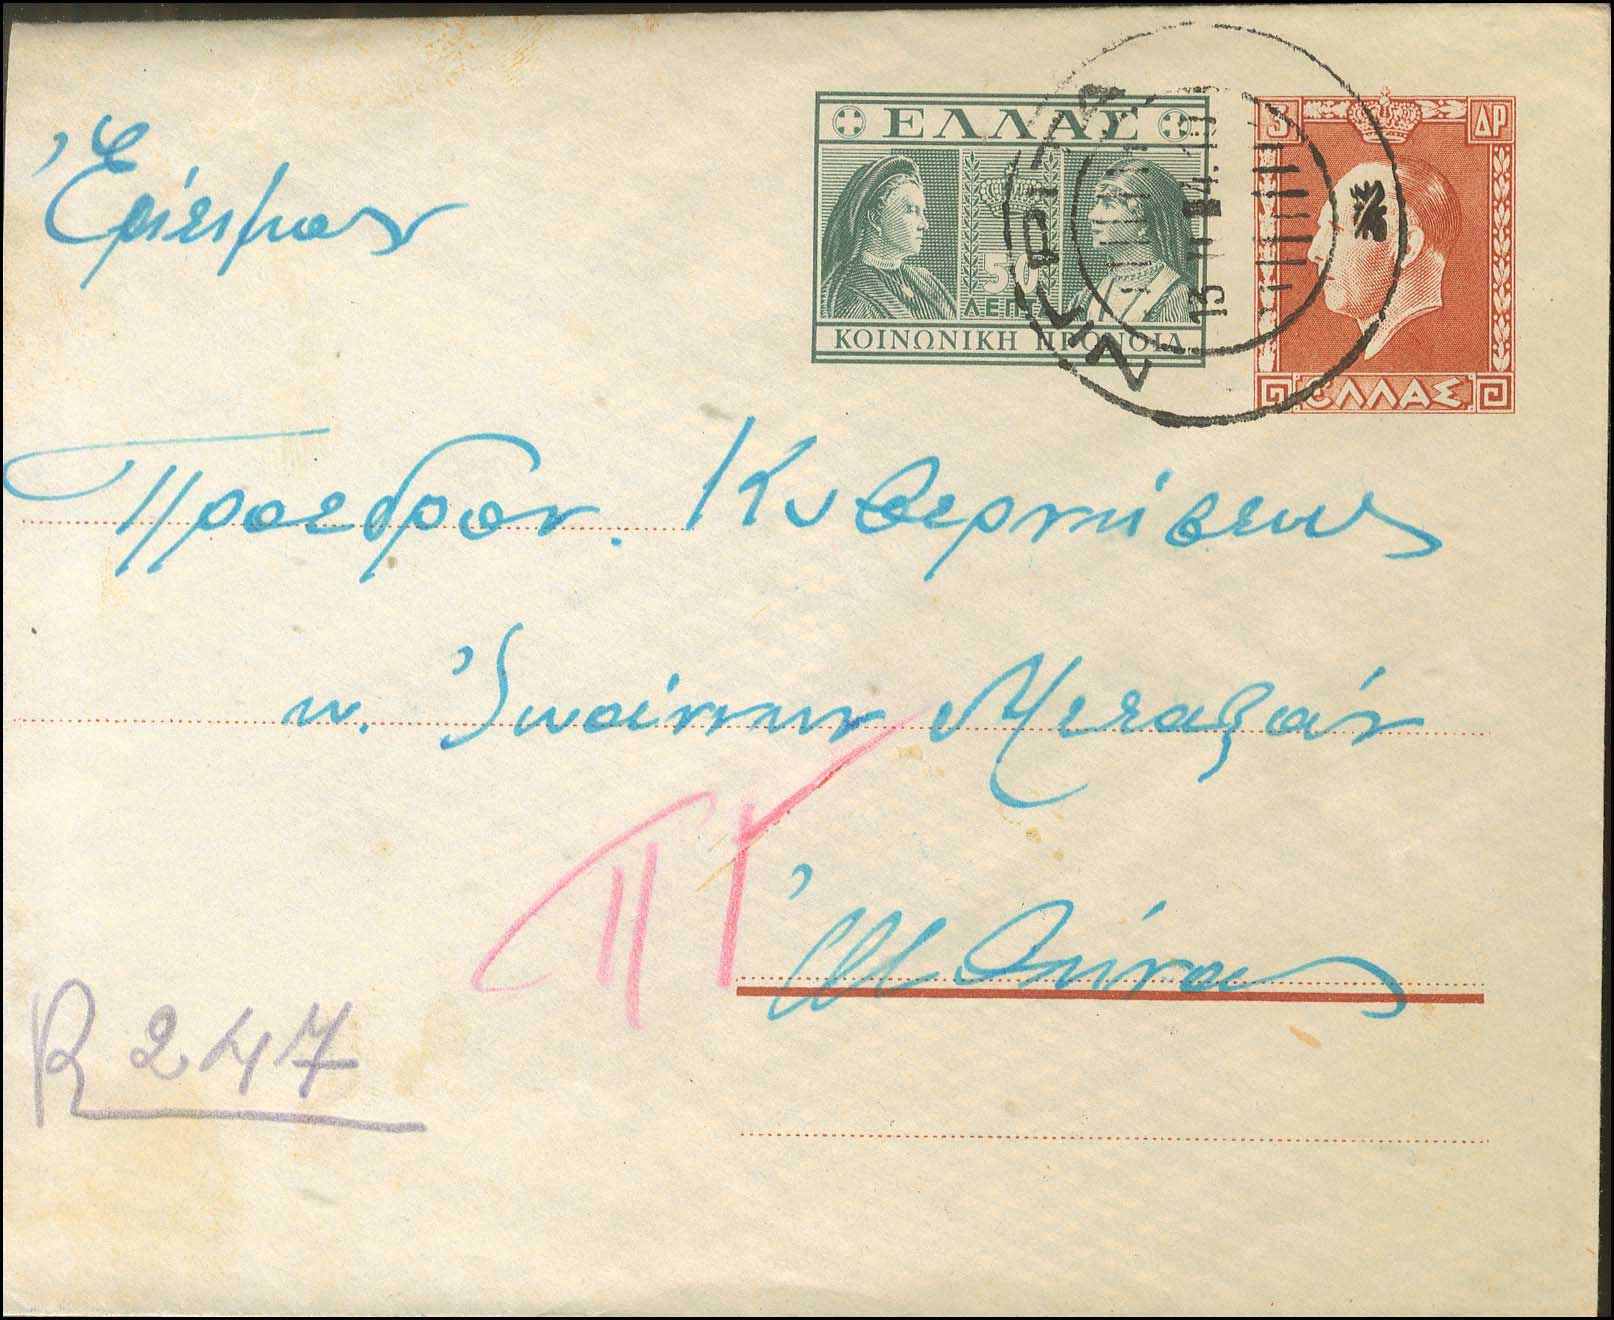 ΕΛΛΑΣ
50
ΛΕΠΤΑ
ΚΟΙΝΩΝΙΚΗ ΠΡΟΝΟΙΑ
3 ΔΡ
ΕΛΛΑΣ
Ἐπίσημον
Πρόεδρον Κυβερνήσεως
κ. Ἰωάννην Μεταξᾶν
ΠΓ
Ἀθήνας
R 247